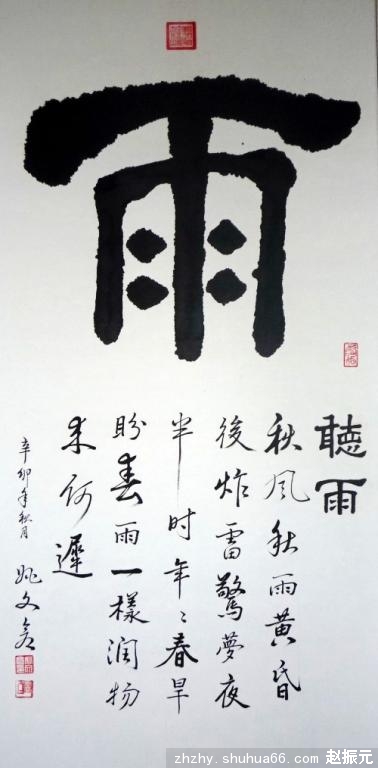 雨
聽雨
秋风秋雨黄昏
後炸雷驚夢夜
半时年々春旱
盼春雨一樣润物
来何遲
辛卯年秋月
姚文
zhzhy.shuhua66.com 赵振元